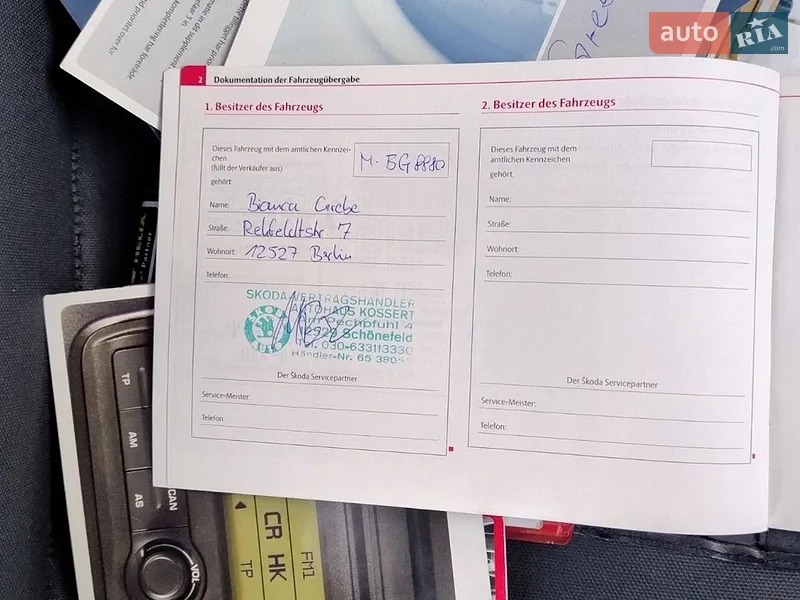 auto RIA
.com
2 Dokumentation der Fahrzeugübergabe
1. Besitzer des Fahrzeugs
Dieses Fahrzeug mit dem amtlichen Kennzei-
chen
(füllt der Verkäufer aus)
gehört:
M-BG 8880
Name: Bianca Grebe
Straße: Rehfeldtstr. 7
Wohnort: 12527 Berlin
Telefon:
SKODA VERTRAGSHÄNDLER
AUTOHAUS KOSSERT
Am Pechpfuhl 4
12529 Schönefeld
Tel. 030-633113330
Händler-Nr. 65 380
SKODA
Der Škoda Servicepartner
Service-Meister:
Telefon:
2. Besitzer des Fahrzeugs
Dieses Fahrzeug mit dem
amtlichen Kennzeichen
gehört:
Name:
Straße:
Wohnort:
Telefon:
Der Škoda Servicepartner
Service-Meister:
Telefon:
TP
AM
AS
SCAN
VOL
CR HK
FM1
TP
Partner